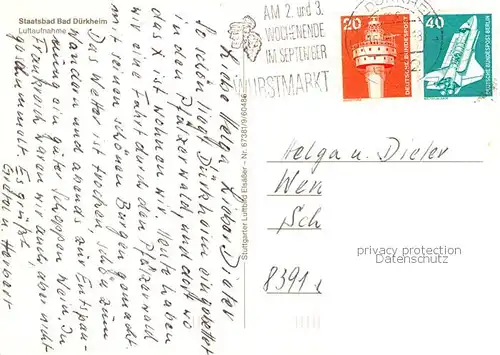 Staatsbad Bad Dürkheim
Luftaufnahme
AM 2. und 3.
WOCHENENDE
IM SEPTEMBER
WURSTMARKT
20
DEUTSCHE BUNDESPOST
40
DEUTSCHE BUNDESPOST BERLIN
Liebe Helga, Lieber Dieter
So schön liegt Dürkheim eingebettet
in den Pfälzerwald, und dort wo
das X ist wohnen wir. Heute haben
wir eine Fahrt durch den Pfälzerwald
mit seinen schönen Burgen gemacht.
Das Wetter ist trocken, schön zum
Wandern und abends zur Entspan-
nung ein guter Schoppen Wein. In
Frankreich waren wir auch aber nicht
Es grüßt
Gretel u. Herbert
Stuttgarter Luftbild Elsäßer – Nr. 67381/9/60486
Helga u. Dieter
Wen
Sch
8391
privacy protection
Datenschutz